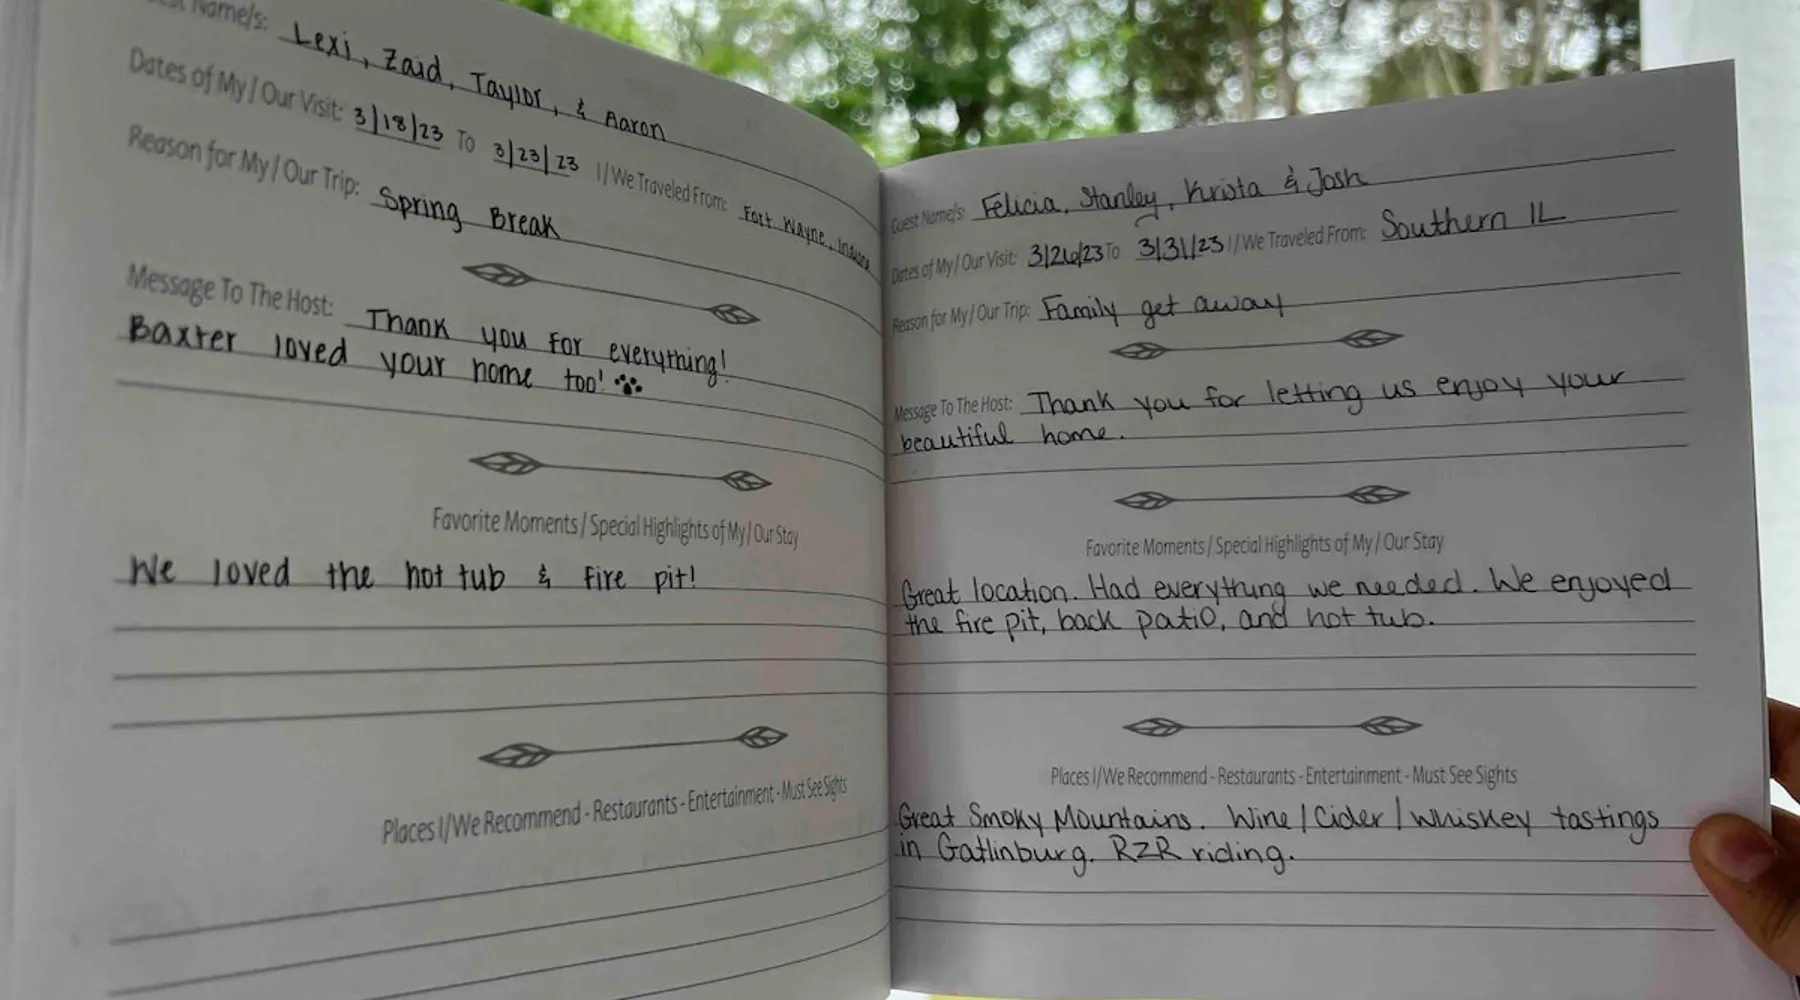 Name/s: Lexi, Zaid, Taylor, & Aaron
Dates of My / Our Visit: 3/18/23 To 3/23/23 I / We Traveled From: Fort Wayne, Indiana
Reason for My / Our Trip: Spring Break
Message To The Host: Thank you for everything!
Baxter loved your home too!
Favorite Moments / Special Highlights of My / Our Stay
We loved the hot tub & fire pit!
Places I/We Recommend - Restaurants - Entertainment - Must See Sights
Guest Name/s: Felicia, Stanley, Krista & Josh
Dates of My / Our Visit: 3/26/23 To 3/31/23 I / We Traveled From: Southern IL
Reason for My / Our Trip: Family get away
Message To The Host: Thank you for letting us enjoy your
beautiful home.
Favorite Moments / Special Highlights of My / Our Stay
Great location. Had everything we needed. We enjoyed
the fire pit, back patio, and hot tub.
Places I/We Recommend - Restaurants - Entertainment - Must See Sights
Great Smoky Mountains. Wine / Cider / Whiskey tastings
in Gatlinburg. RZR riding.